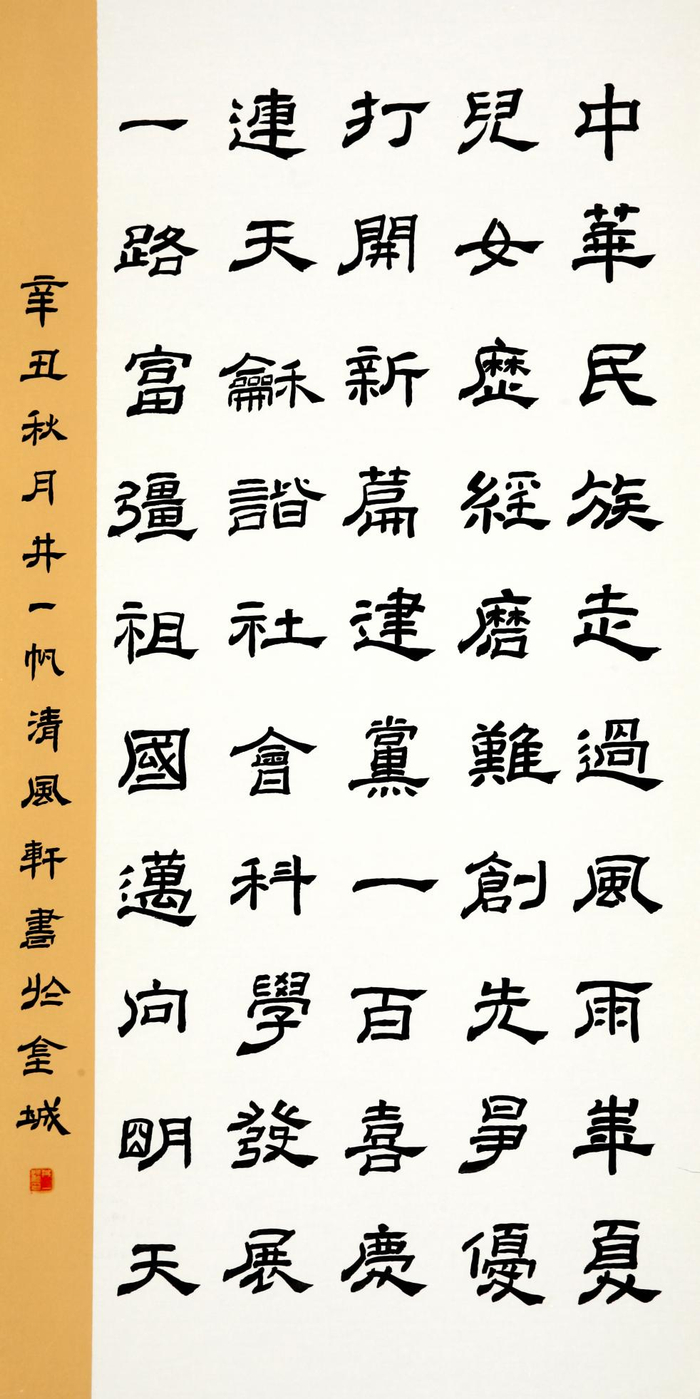 中華民族走過風雨華夏
兒女歷經磨難創先爭優
打開新篇建黨一百喜慶
連天龢諧社會科學發展
一路富彊祖國邁向朙天
辛丑秋月井一帆清風軒書於金城